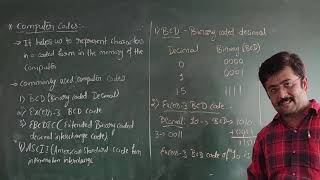 * Computer Codes:-
→ It helps us to represent characters
in a coded form in the memory of the
Computer
→ Commonly used computer codes
1) BCD (Binary Coded Decimal)
2) Excess-3 BCD code
3) EBCDIC (Extended Binary coded
decimal interchange code)
4) ASCII (American Standard code for
information interchange
1) BCD - Binary coded decimal
Decimal Binary (BCD)
0 0000
1 0001
15 1111
2) Excess-3 BCD code -
Decimal 10 → BCD → 1010
3 → 0011 +0011
Excess-3 BCD code of